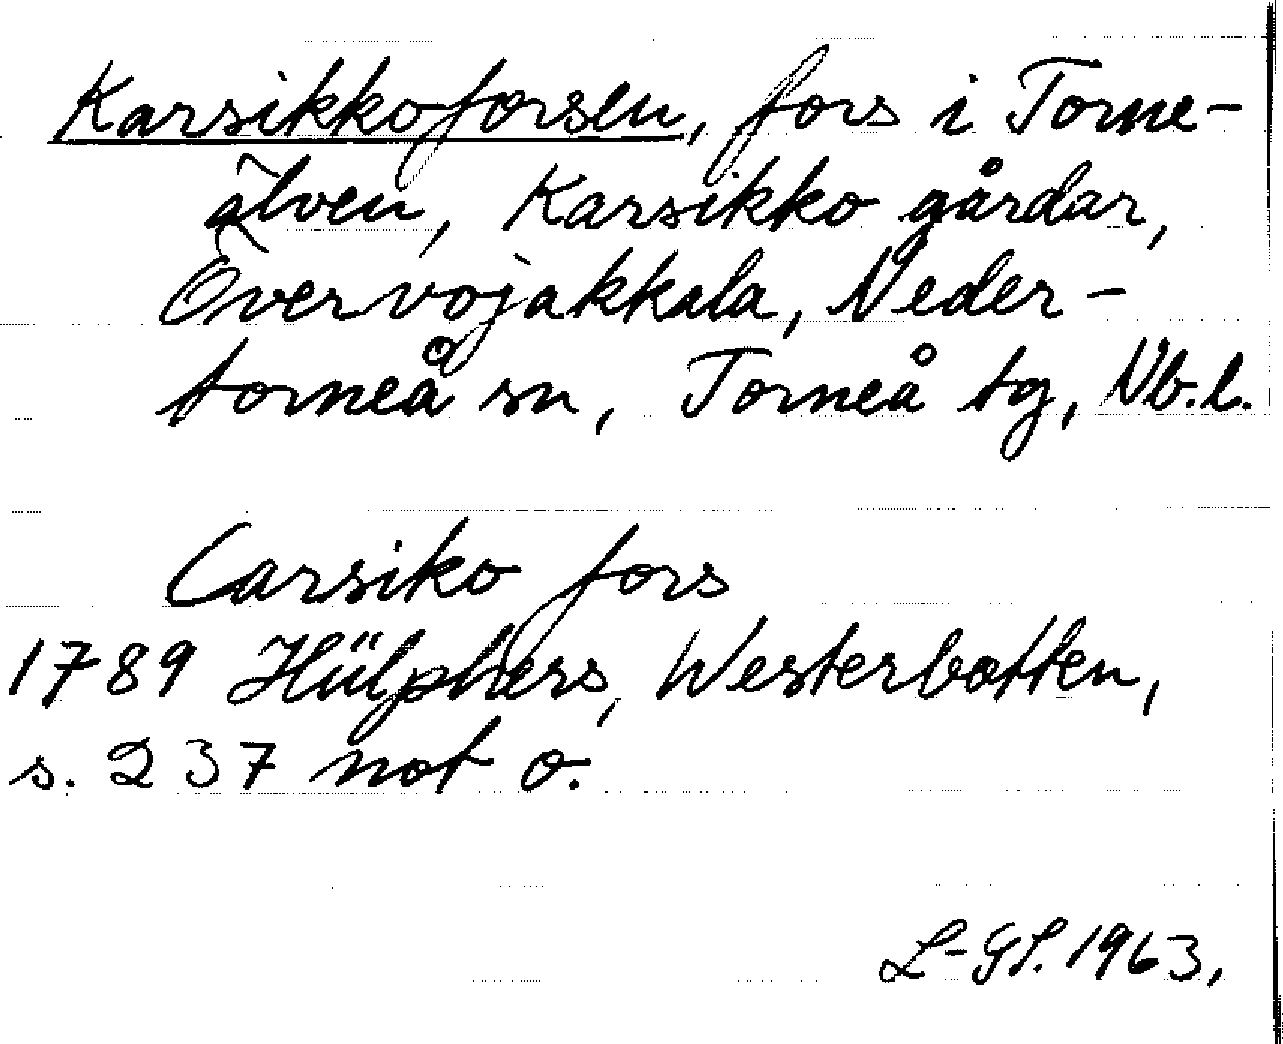 Karsikkoforsen, fors i Torne-
älven, Karsikko gårdar,
Övervojakkala, Neder-
torneå sn, Torneå tg, Nb.l.
Carsiko fors
1789 Hülphers, Westerbotten,
s. 237 not o.
L-GL. 1963,